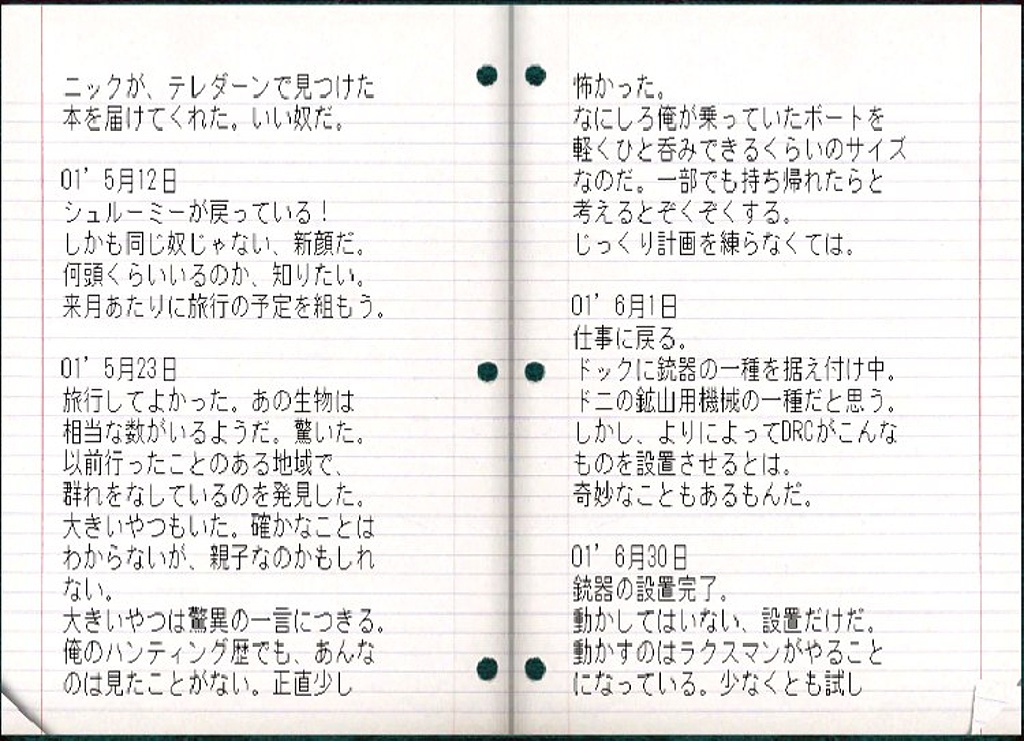 ニックが、テレダーンで見つけた
本を届けてくれた。いい奴だ。
01’ 5月12日
シュルーミーが戻っている！
しかも同じ奴じゃない、新顔だ。
何頭くらいいるのか、知りたい。
来月あたりに旅行の予定を組もう。
01’ 5月23日
旅行してよかった。あの生物は
相当な数がいるようだ。驚いた。
以前行ったことのある地域で、
群れをなしているのを発見した。
大きいやつもいた。確かなことは
わからないが、親子なのかもしれ
ない。
大きいやつは驚異の一言につきる。
俺のハンティング歴でも、あんな
のは見たことがない。正直少し
怖かった。
なにしろ俺が乗っていたボートを
軽くひと呑みできるくらいのサイズ
なのだ。一部でも持ち帰れたらと
考えるとぞくぞくする。
じっくり計画を練らなくては。
01’ 6月1日
仕事に戻る。
ドックに銃器の一種を据え付け中。
ドニの鉱山用機械の一種だと思う。
しかし、よりによってDRCがこんな
ものを設置させるとは。
奇妙なこともあるもんだ。
01’ 6月30日
銃器の設置完了。
動かしてはいない、設置だけだ。
動かすのはラクスマンがやること
になっている。少なくとも試し